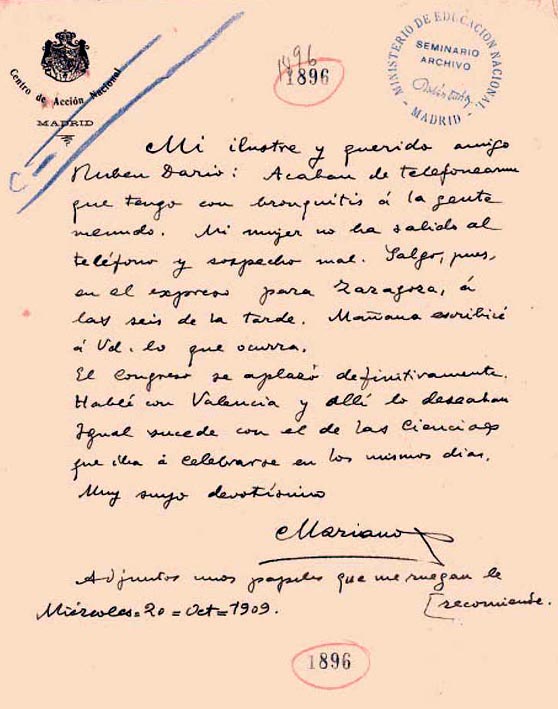 Centro de Acción Nacional
MADRID
1896
1896
MINISTERIO DE EDUCACION NACIONAL
SEMINARIO
ARCHIVO
MADRID
Mi ilustre y querido amigo
Ruben Dario: Acaban de telefonearme
que tengo con bronquitis á la gente
menuda. Mi mujer no ha salido al
teléfono y sospecho mal. Salgo, pues,
en el expreso para Zaragoza, á
las seis de la tarde. Mañana escribiré
á Vd. lo que ocurra.
El Congreso se aplazó definitivamente.
Hablé con Valencia y allí lo deseaban
Igual sucede con el de las Ciencias
que iba á celebrarse en los mismos dias.
Muy suyo devotísimo
Mariano
Adjuntos unos papeles que me ruegan le
[recomiende.
Miércoles = 20 = Oct = 1909.
1896